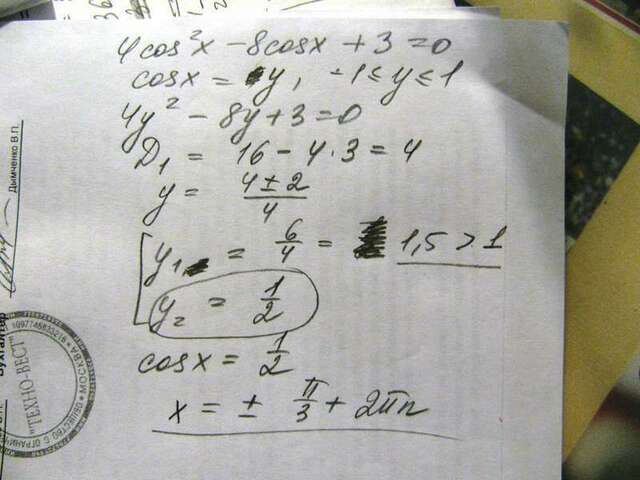 4cos²x - 8cosx + 3 = 0
cosx = y, -1 ≤ y ≤ 1
4y² - 8y + 3 = 0
D₁ = 16 - 4·3 = 4
y = (4 ± 2)/4
y₁ = 6/4 = 1,5 > 1
y₂ = 1/2
cosx = 1/2
x = ± π/3 + 2πn
Дымченко В.П.
Бухгалтер
"ТЕХНО-ВЕСТ"
МОСКВА